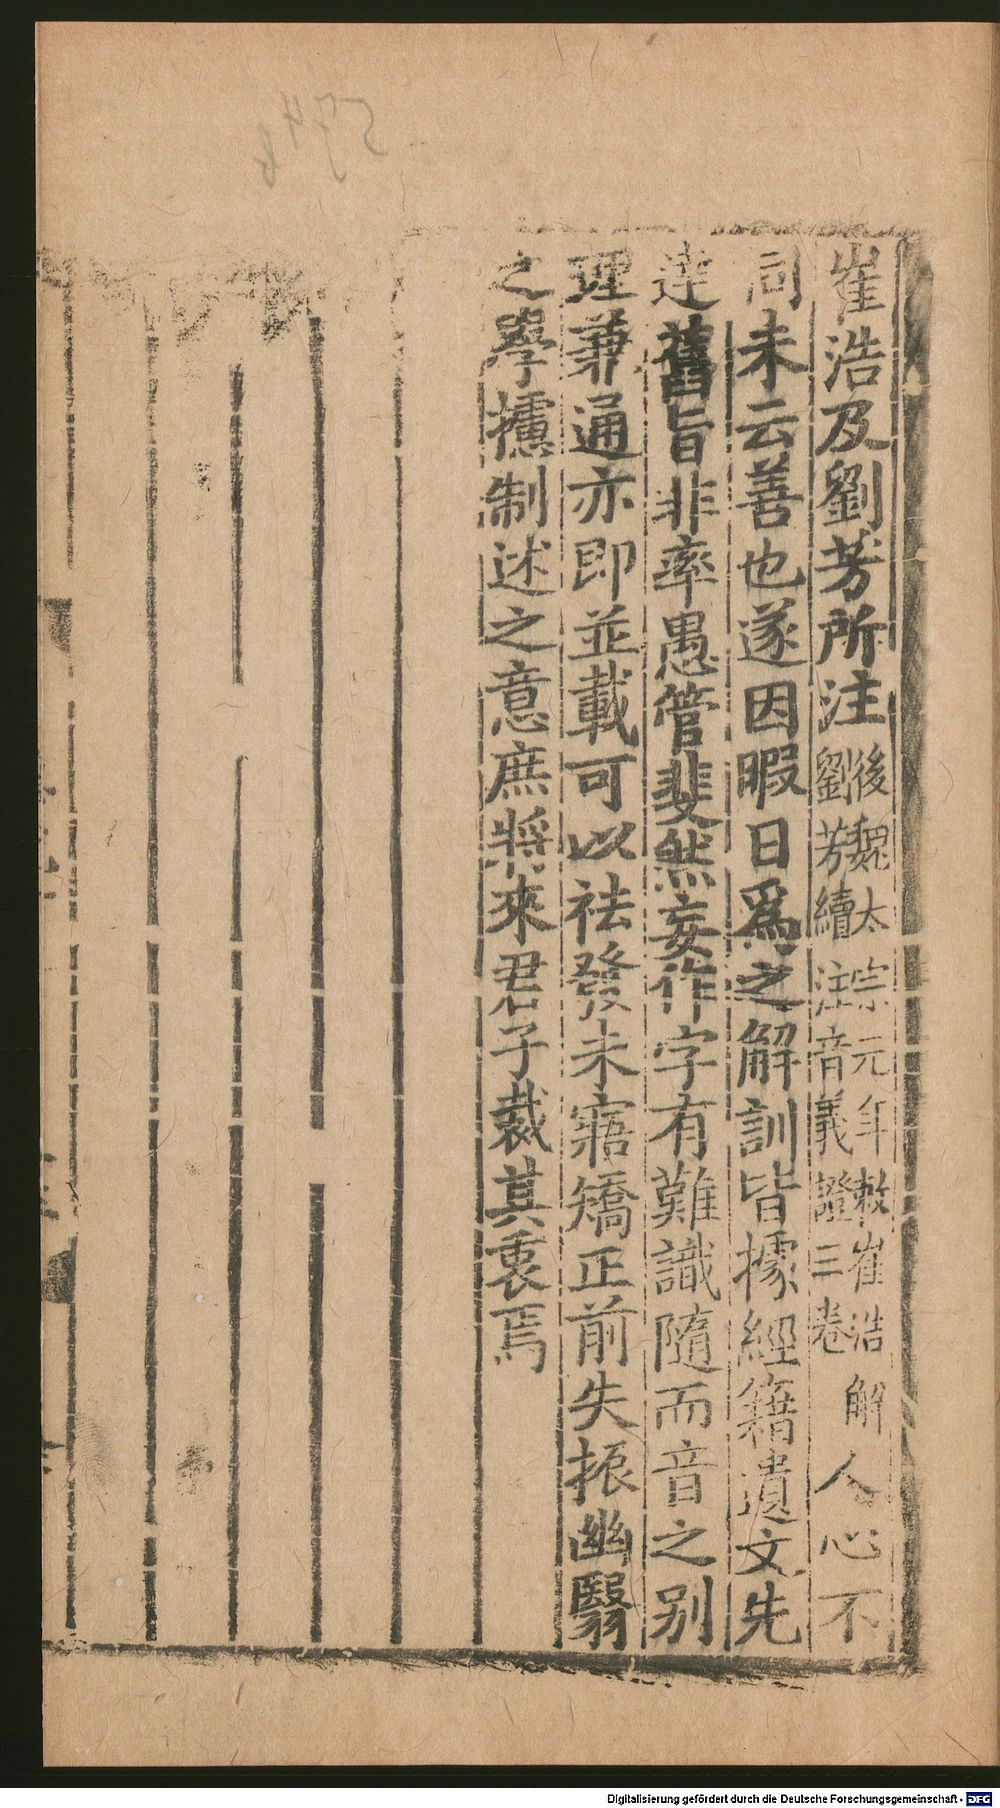 崔浩及劉芳所注後魏太宗元年敕崔浩解劉芳續注音義證三卷人心不
同未云善也遂因暇日為之解訓皆據經籍遺文先
達舊旨非率愚管斐然妄作字有難識隨而音之別
理兼通亦即並載可以祛發未寤矯正前失振幽翳
之學攄制述之意庶將來君子裁其衷焉
594b
Digitalisierung gefördert durch die Deutsche Forschungsgemeinschaft - DFG